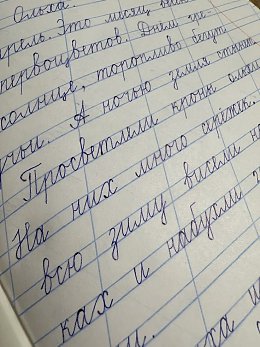 Ольха.
рель. Это месяц
первоцветов. Днём
солнце, торопливо бегут
чьи. А ночью земля стынет
Просветлели кроны ольхи
На них много серёжек.
всю зиму висели на
ках и набухли